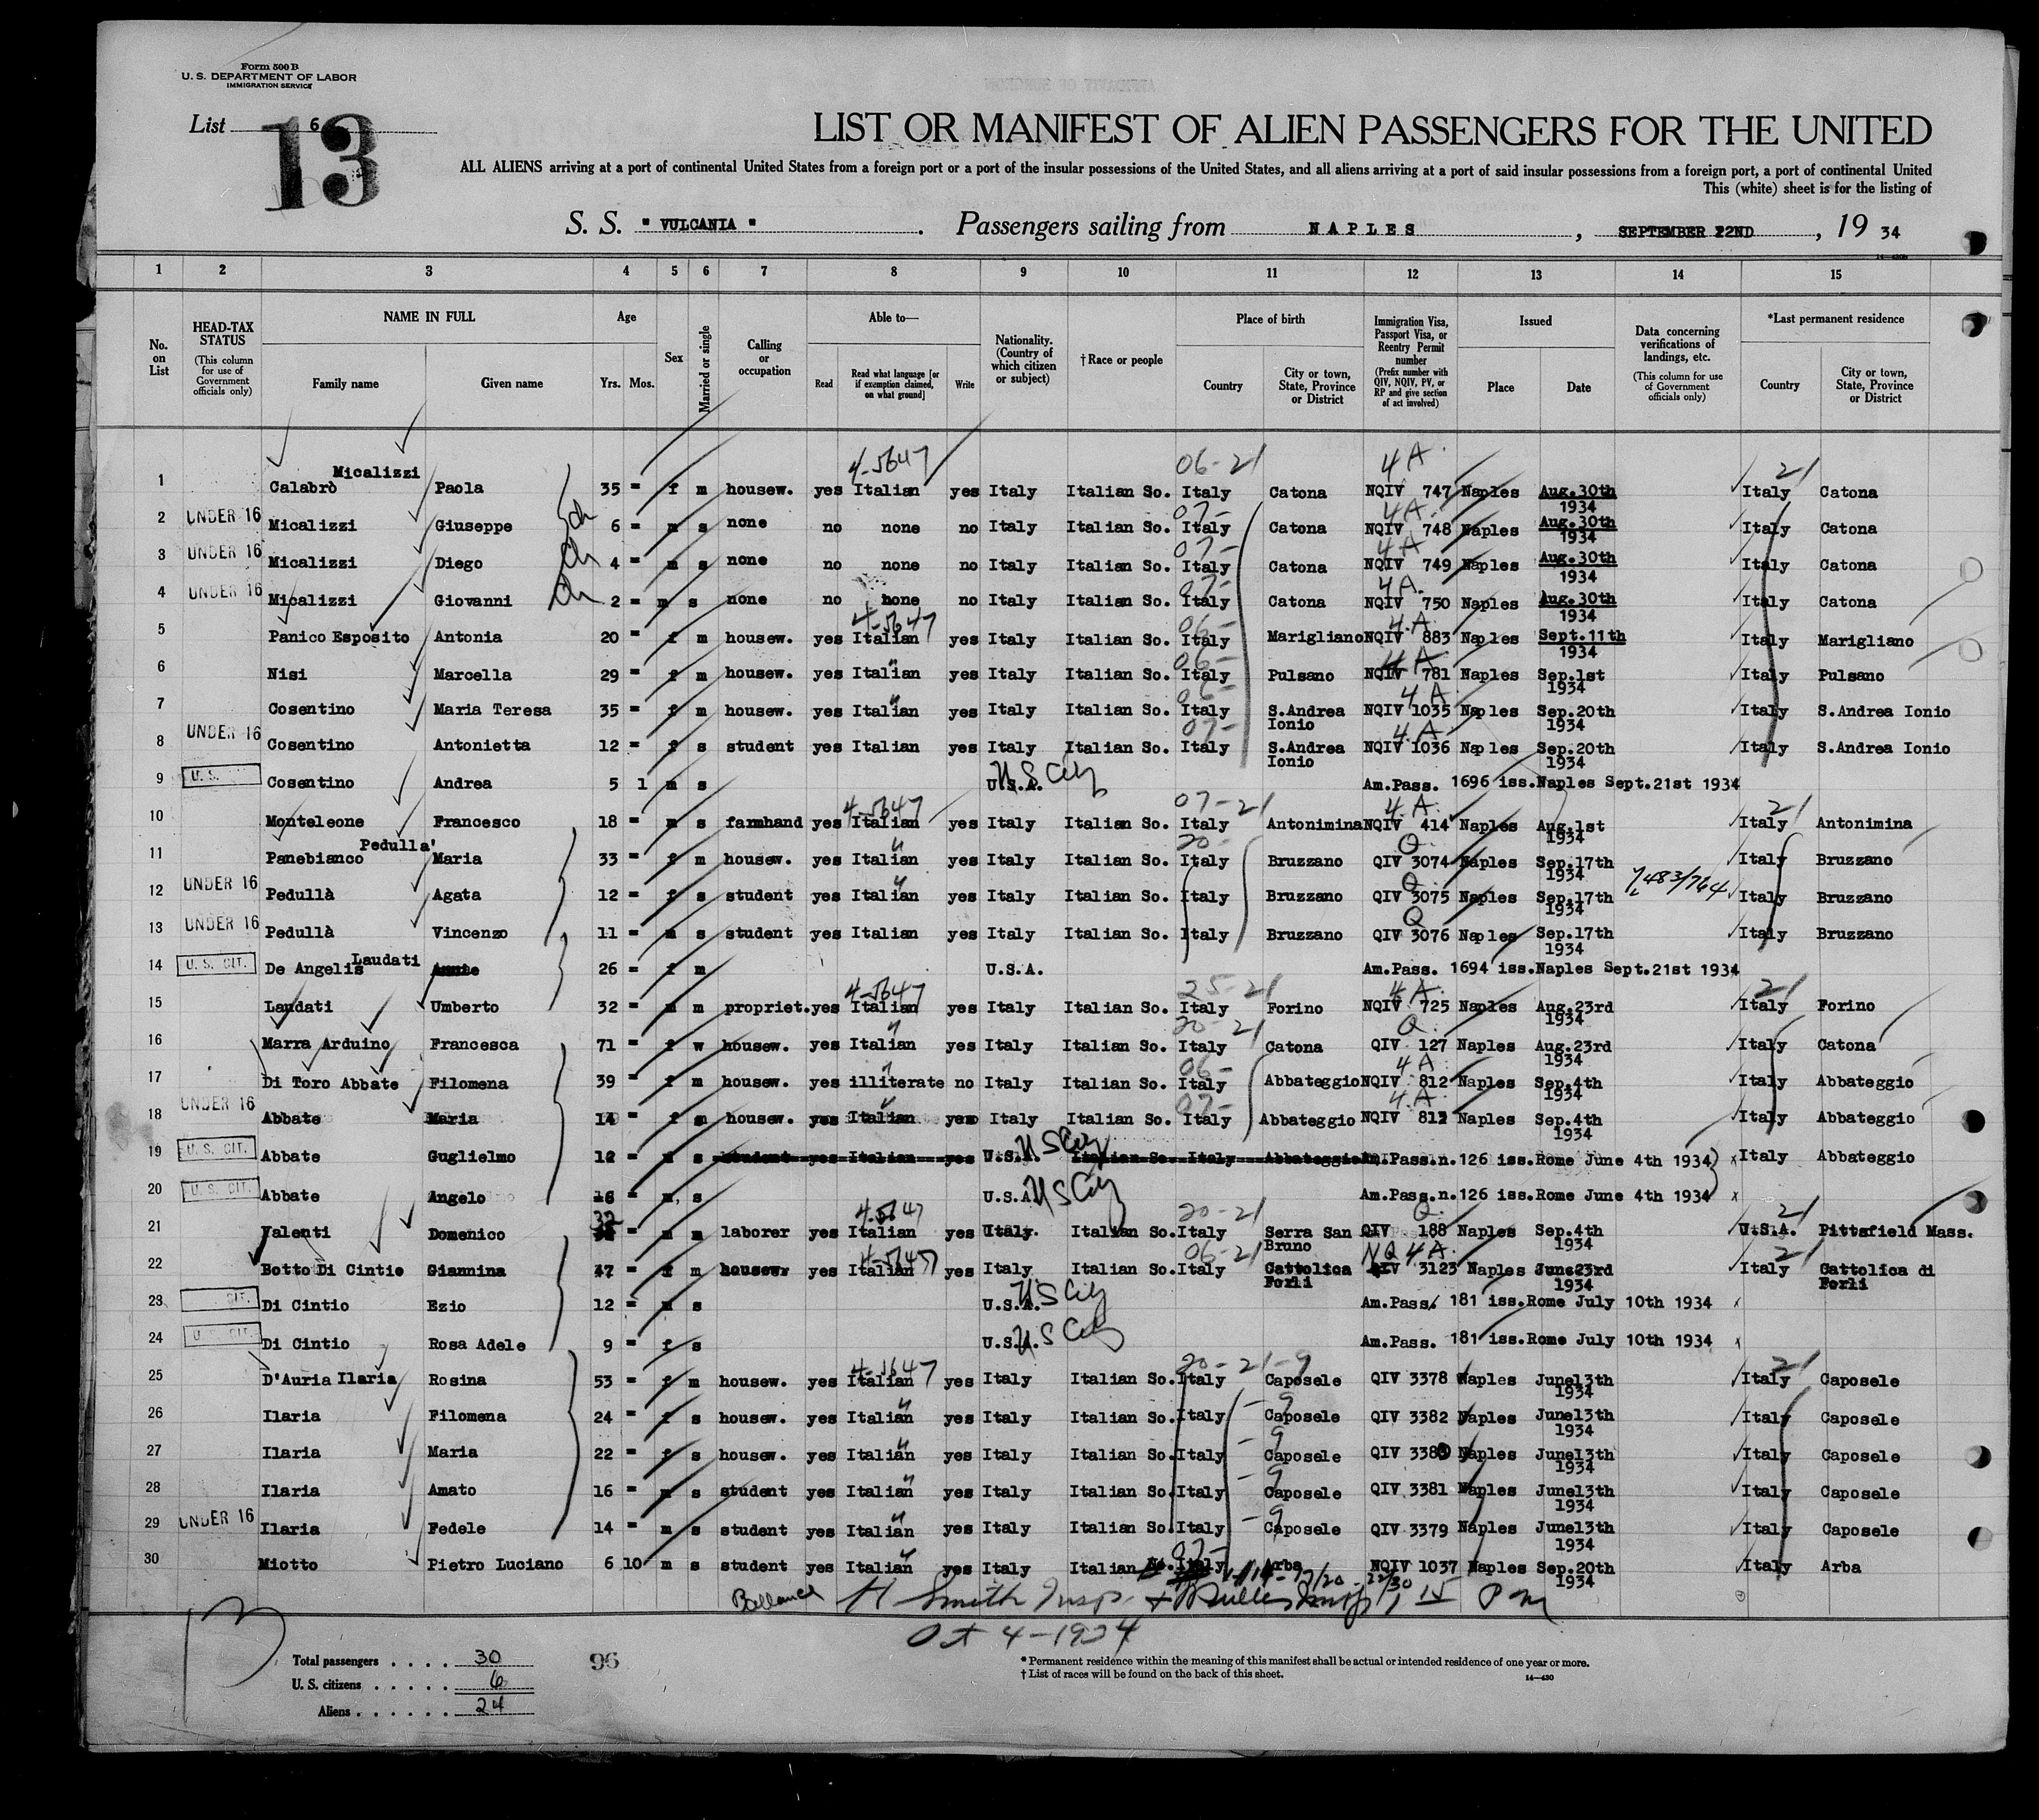 Form 500 B
U. S. DEPARTMENT OF LABOR
IMMIGRATION SERVICE
List 6
13
LIST OR MANIFEST OF ALIEN PASSENGERS FOR THE UNITED
ALL ALIENS arriving at a port of continental United States from a foreign port or a port of the insular possessions of the United States, and all aliens arriving at a port of said insular possessions from a foreign port, a port of continental United
This (white) sheet is for the listing of
S. S. " VULCANIA " . Passengers sailing from NAPLES , SEPTEMBER 22ND , 19 34
1 2 3 4 5 6 7 8 9 10 11 12 13 14 15
No. on List
HEAD-TAX STATUS (This column for use of Government officials only)
NAME IN FULL Family name Given name
Age Yrs. Mos.
Sex
Married or single
Calling or occupation
Able to— Read Read what language [or if exemption claimed, on what ground] Write
Nationality. (Country of which citizen or subject)
†Race or people
Place of birth Country City or town, State, Province or District
Immigration Visa, Passport Visa, or Reentry Permit number (Prefix number with QIV, NQIV, PV, or RP and give section of act involved)
Issued Place Date
Data concerning verifications of landings, etc. (This column for use of Government officials only)
*Last permanent residence Country City or town, State, Province or District
4-5647 06-21 4A 21
1 Calabrò Micalizzi Paola 35 = f m housew. yes Italian yes Italy Italian So. Italy Catona NQIV 747 Naples Aug.30th 1934 Italy Catona
2 UNDER 16 Micalizzi Giuseppe ch 6 = m s none no none no Italy Italian So. 07- Italy Catona 4A. NQIV 748 Naples Aug.30th 1934 Italy Catona
3 UNDER 16 Micalizzi Diego ch 4 = m s none no none no Italy Italian So. 07- Italy Catona 4A NQIV 749 Naples Aug.30th 1934 Italy Catona
4 UNDER 16 Micalizzi Giovanni ch 2 = m s none no none no Italy Italian So. 07- Italy Catona 4A. NQIV 750 Naples Aug.30th 1934 Italy Catona
5 Panico Esposito Antonia 20 = f m housew. yes 4-5647 Italian yes Italy Italian So. 06- Italy Marigliano 4.A. NQIV 883 Naples Sept.11th 1934 Italy Marigliano
6 Nisi Marcella 29 = f m housew. yes Italian yes Italy Italian So. 06- Italy Pulsano 4A NQIV 781 Naples Sep.1st 1934 Italy Pulsano
7 Cosentino Maria Teresa 35 = f m housew. yes Italian yes Italy Italian So. 06- Italy S.Andrea Ionio 4A. NQIV 1035 Naples Sep.20th 1934 Italy S.Andrea Ionio
8 UNDER 16 Cosentino Antonietta 12 = f s student yes Italian yes Italy Italian So. 07- Italy S.Andrea Ionio 4.A. NQIV 1036 Naples Sep.20th 1934 Italy S.Andrea Ionio
9 U. S. Cosentino Andrea 5 1 m s U.S.A. Am.Pass. 1696 iss.Naples Sept.21st 1934
10 Monteleone Francesco 18 = m s farmhand yes 4-5647 Italian yes Italy Italian So. 07-21 Italy Antonimina 4.A. NQIV 414 Naples Aug.1st 1934 21 Italy Antonimina
11 Panebianco Pedulla' Maria 33 = f m housew. yes Italian yes Italy Italian So. 20- Italy Bruzzano Q QIV 3074 Naples Sep.17th 1934 Italy Bruzzano
12 UNDER 16 Pedullà Agata 12 = f s student yes Italian yes Italy Italian So. Italy Bruzzano Q QIV 3075 Naples Sep.17th 1934 483/764 Italy Bruzzano
13 UNDER 16 Pedullà Vincenzo 11 = m s student yes Italian yes Italy Italian So. Italy Bruzzano Q QIV 3076 Naples Sep.17th 1934 Italy Bruzzano
14 U. S. CIT. De Angelis Laudati 26 = f m U.S.A. Am.Pass. 1694 iss.Naples Sept.21st 1934
15 Laudati Umberto 32 = m m propriet. yes 4-5647 Italian yes Italy Italian So. 25-21 Italy Forino 4A. NQIV 725 Naples Aug.23rd 1934 21 Italy Forino
16 Marra Arduino Francesca 71 = f w housew. yes Italian yes Italy Italian So. 20-21 Italy Catona Q. QIV 127 Naples Aug.23rd 1934 Italy Catona
17 Di Toro Abbate Filomena 39 = f m housew. yes illiterate no Italy Italian So. 06- Italy Abbateggio 4A NQIV 812 Naples Sep.4th 1934 Italy Abbateggio
18 UNDER 16 Abbate Maria 14 = f m housew. yes Italian yes Italy Italian So. 07- Italy Abbateggio 4.A. NQIV 813 Naples Sep.4th 1934 Italy Abbateggio
19 U. S. CIT. Abbate Guglielmo 12 = m s student yes Italian yes U.S.A. US City Italian So. Italy Abbateggio Am.Pass.n.126 iss.Rome June 4th 1934 Italy Abbateggio
20 U. S. CIT. Abbate Angelo = m, s U.S.A US City Am.Pass.n.126 iss.Rome June 4th 1934
21 Valenti Domenico 32 = m m laborer yes 4-5647 Italian yes Italy. Italian So. 20-21 Italy Serra San Bruno Q. QIV 188 Naples Sep.4th 1934 21 U.S.A. Pittsfield Mass.
22 Botto Di Cintio Giannina 47 = f m housew. yes 4-5647 Italian yes Italy Italian So. 06-21 Italy Cattolica Forli NQ 4A. QIV 3123 Naples June23rd 21 Italy Cattolica di Forli
23 CIT. Di Cintio Ezio 12 = m s U.S.A. US City Am.Pass. 181 iss.Rome July 10th 1934
24 U. S. CIT. Di Cintio Rosa Adele 9 = f s U.S.A. US City Am.Pass. 181 iss.Rome July 10th 1934
25 D'Auria Ilaria Rosina 53 = f m housew. yes 4-5647 Italian yes Italy Italian So. 20-21-9 Italy Caposele QIV 3378 Naples June13th 1934 21 Italy Caposele
26 Ilaria Filomena 24 = f s housew. yes Italian yes Italy Italian So. Italy -9 Caposele QIV 3382 Naples June13th 1934 Italy Caposele
27 Ilaria Maria 22 = f s housew. yes Italian yes Italy Italian So. Italy -9 Caposele QIV 3380 Naples June13th 1934 Italy Caposele
28 Ilaria Amato 16 = m s student yes Italian yes Italy Italian So. Italy -9 Caposele QIV 3381 Naples June13th 1934 Italy Caposele
29 UNDER 16 Ilaria Fedele 14 = m s student yes Italian yes Italy Italian So. Italy -9 Caposele QIV 3379 Naples June13th 1934 Italy Caposele
30 Miotto Pietro Luciano 6 10 m s student yes Italian yes Italy Italian 07- Italy Arba NQIV 1037 Naples Sep.20th 1934 Italy Arba
H Smith Insp. 15 P M
Oct 4-1934
Total passengers . . . . 30
U. S. citizens . . . . . 6
Aliens . . . . . . 24
96
* Permanent residence within the meaning of this manifest shall be actual or intended residence of one year or more.
† List of races will be found on the back of this sheet.
14—430